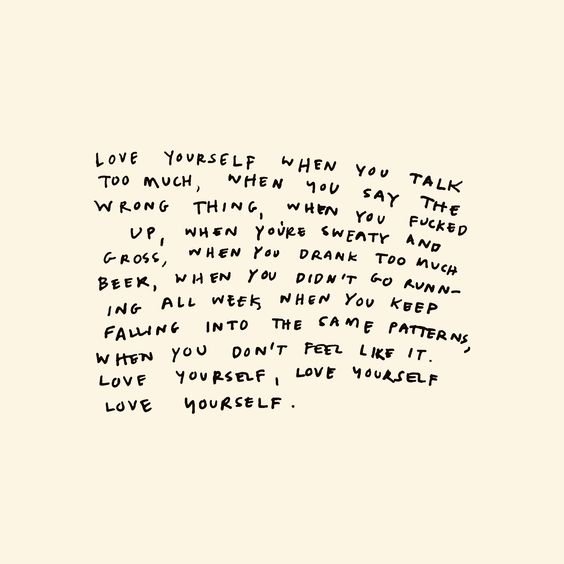 LOVE YOURSELF WHEN YOU TALK
TOO MUCH, WHEN YOU SAY THE
WRONG THING, WHEN YOU FUCKED
UP, WHEN YOU'RE SWEATY AND
GROSS, WHEN YOU DRANK TOO MUCH
BEER, WHEN YOU DIDN'T GO RUNN-
ING ALL WEEK, WHEN YOU KEEP
FALLING INTO THE SAME PATTERNS,
WHEN YOU DON'T FEEL LIKE IT.
LOVE YOURSELF, LOVE YOURSELF
LOVE YOURSELF.